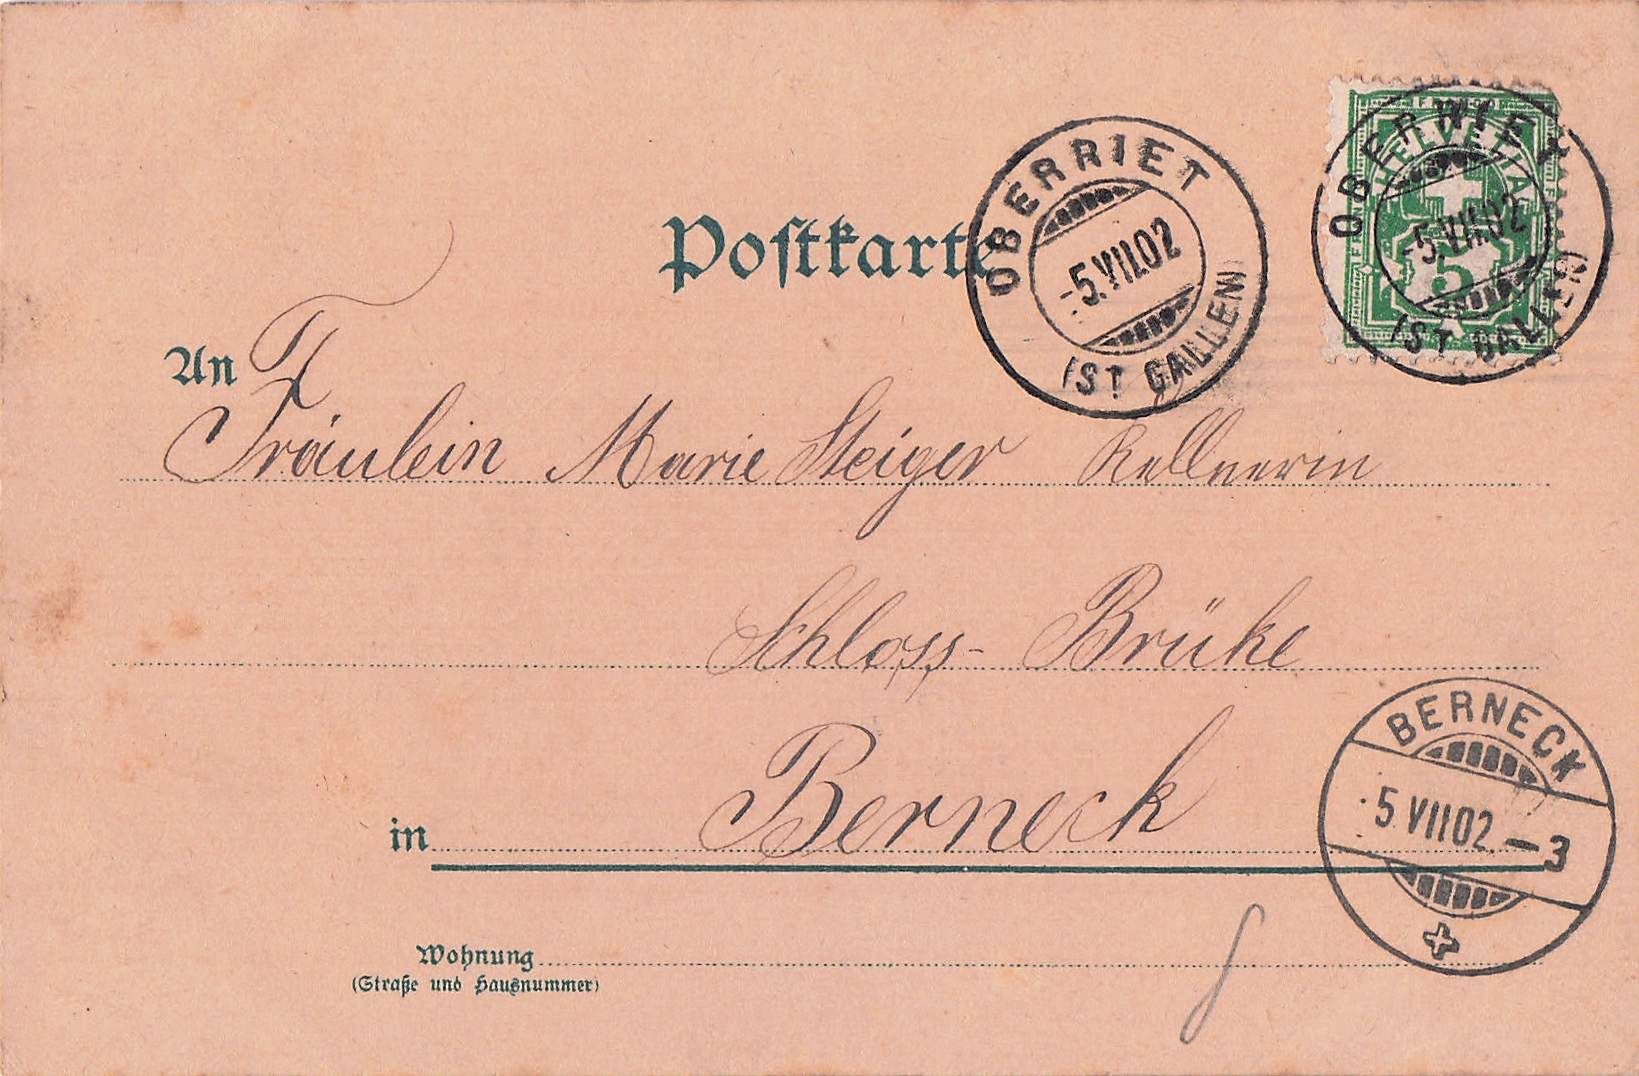 Postkarte
OBERRIET
-5.VII.02
(ST. GALLEN)
OBERRIET
HELVETIA
-5.VII.02
5
(ST. GALLEN)
An
Fräulein Marie Steiger Kellnerin
Schloss-Brüke
in Berneck
BERNECK
5 VII 02 -3
Wohnung
(Straße und Hausnummer)